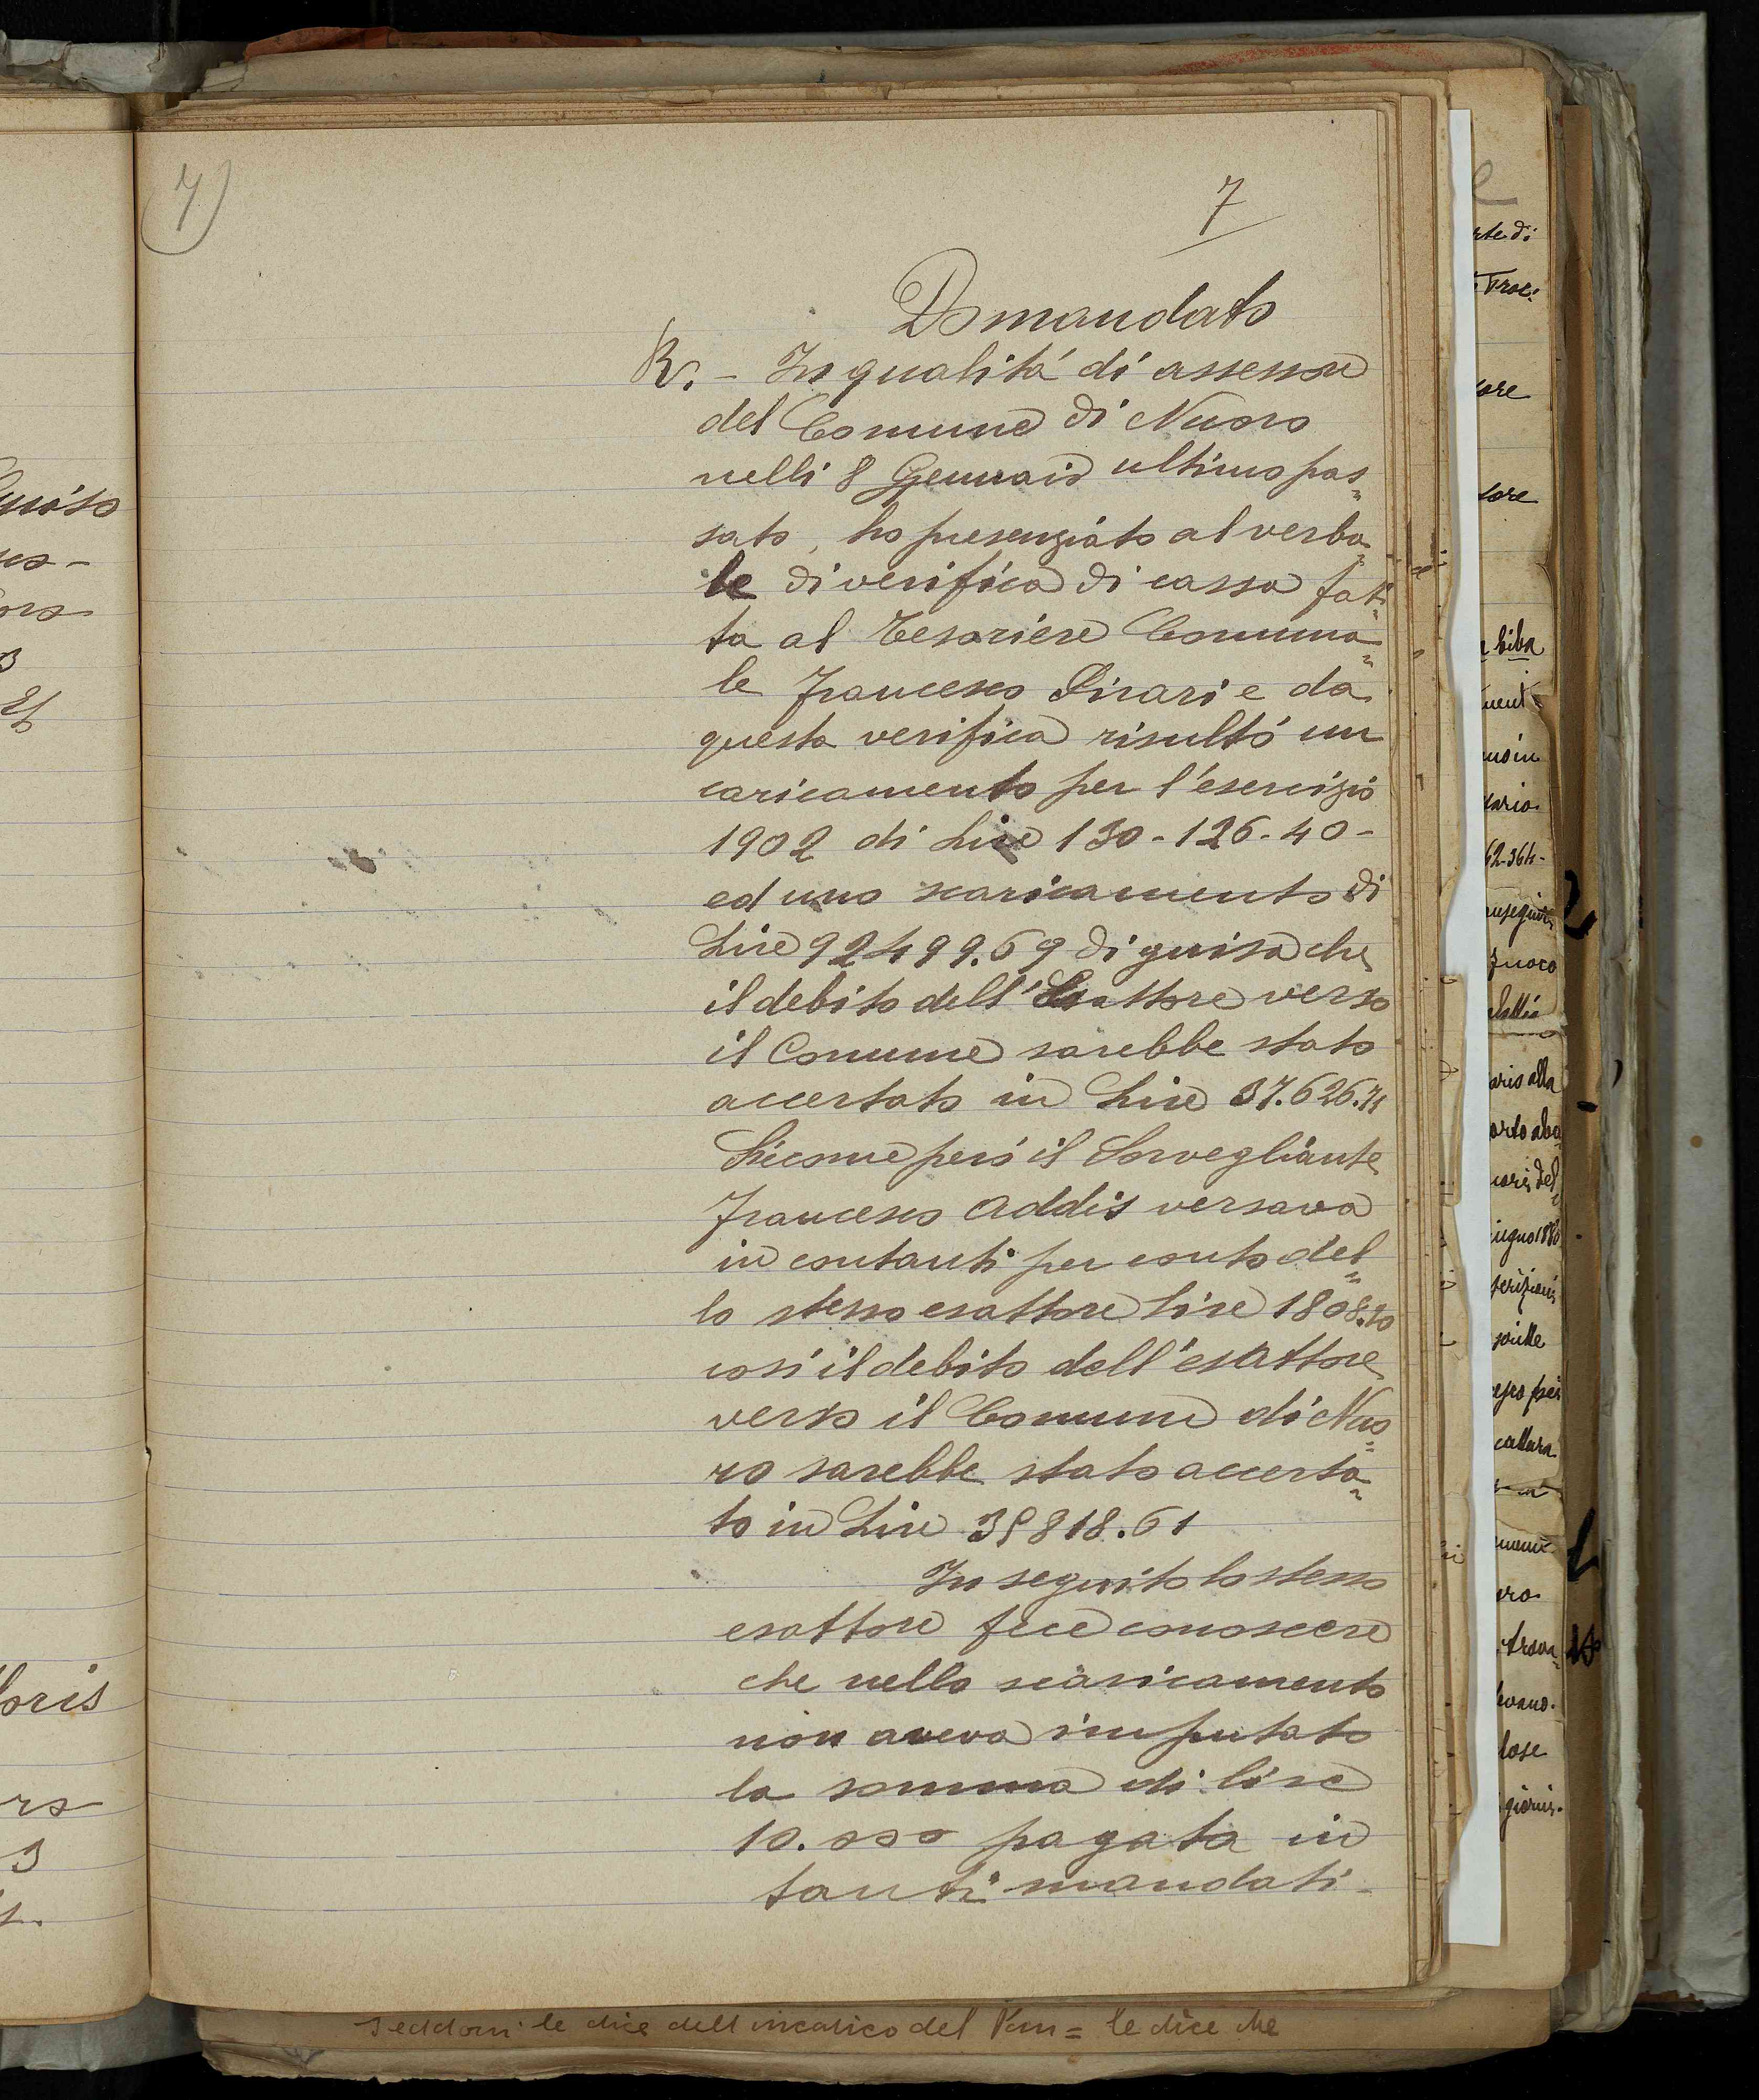 7)
7
Domandato
R. - In qualitá di assessore
del Comune di Nuoro
nelli 8 Gennaio ultimo pas=
sato, ho presenziato al verba=
le di verifica di cassa fat=
ta al Tesoriere Comuna=
le Francesco Pirari e da
questa verifica risultó un
caricamento per l'esercizio
1902 di Lire 130-126-40-
ed uno scaricamento di
Lire 92499.69 di guisa che
il debito dell'Esattore verso
il Comune sarebbe stato
accertato in Lire 37.626.71
Siccome peró il Sorvegliante
Francesco Addis versava
in contanti per conto del=
lo stesso esattore lire 1808.10
cosi il debito dell'esattore
verso il Comune di Nuo=
ro sarebbe stato accerta=
to in Lire 35818.61
In seguito lo stesso
esattore fece conoscere
che nello scaricamento
non aveva imputato
la somma di lire
10.000 pagata in
tanti mandati-
le dice dell'incarico del = le dice che
rte di
sore
tore
62-364-
fuoco
aris alla
iugno 1880
scrizioni
trova=
giorni.